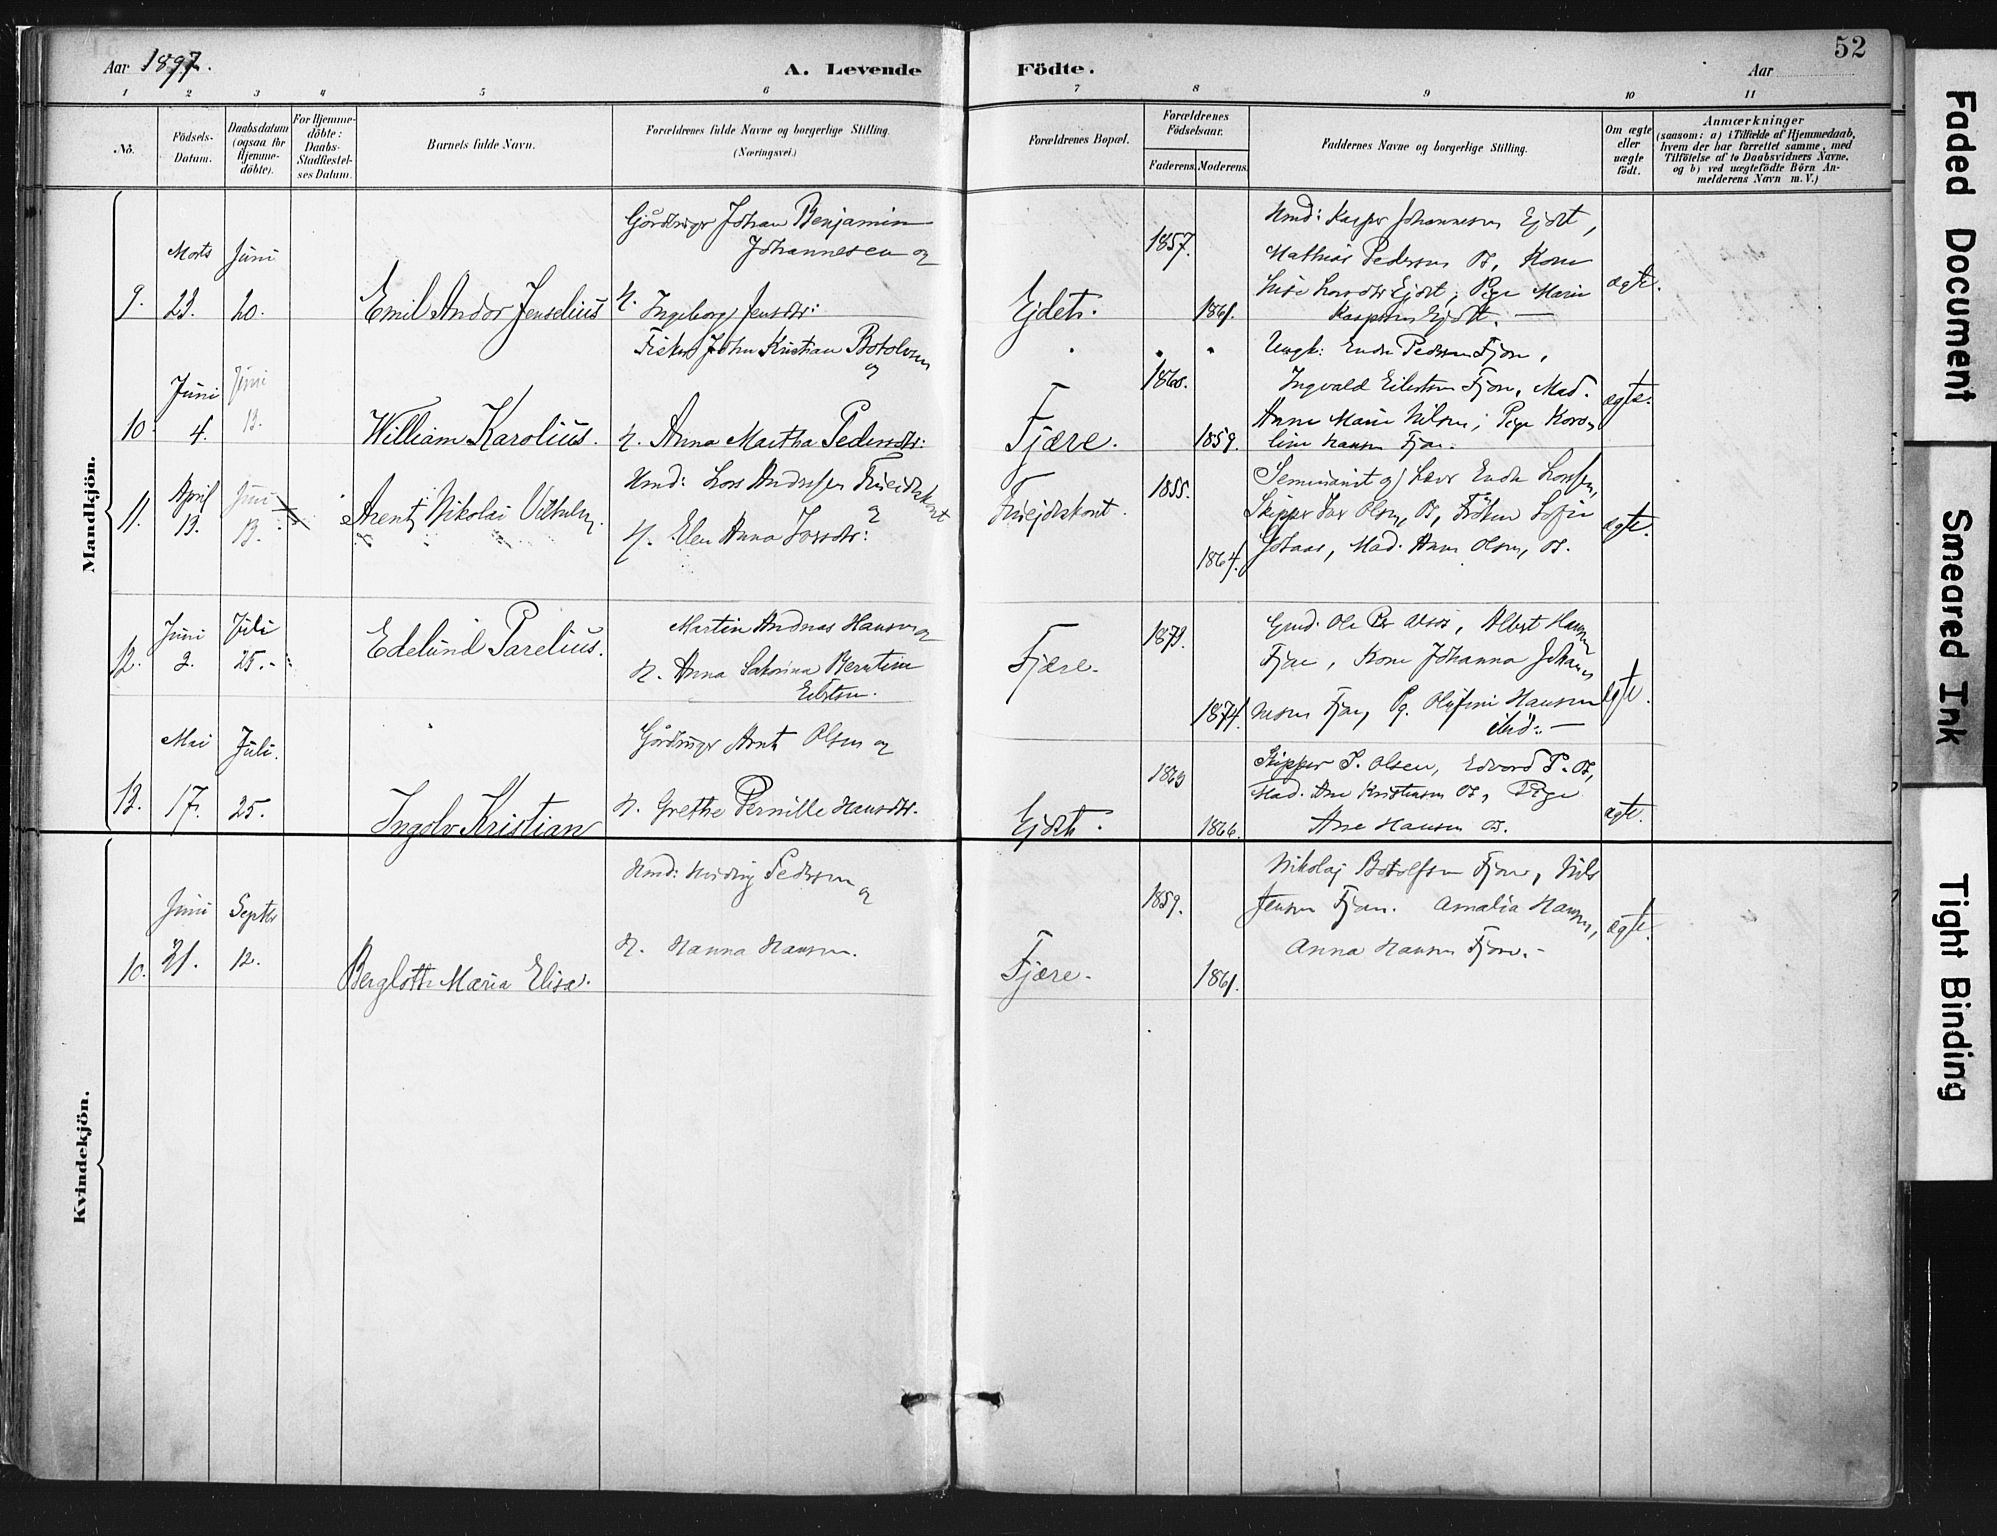 Aar 1897.
A. Levende Födte.
Aar
52
1 2 3 4 5 6 7 8 9 10 11
No.
Födsels-Datum.
Daabsdatum (ogsaa for Hjemme-döbte).
For Hjemme-döbte: Daabs-Stadfæstel-ses Datum.
Barnets fulde Navn.
Forældrenes fulde Navne og borgerlige Stilling. (Næringsvei.)
Forældrenes Bopæl.
Forældrenes Födselsaar.
Faderens. Moderens.
Faddernes Navne og borgerlige Stilling.
Om ægte eller uægte födt.
Anmærkninger (saasom: a) i Tilfælde af Hjemmedaab, hvem der har forrettet samme, med Tilföielse af to Daabsvidners Navne, og b) ved uægtefödte Börn An-melderens Navn m. V.)
Mandkjön.
9. Marts 23. Juni 20.
Emil Andor Jenselius
Gårdbruger Johan Benjamin
Johannesen og
H. Ingeborg Jensdtr:
Ejdet.
1857. 1861.
Kmd: Kasper Johannesen Ejdet,
Mathias Pedersen Os, Kone
Ejdet, Pige Marie
Ejdet.
ægte.
10. Juni 4. Juni 13.
William Karolius.
Fisker John Kristian Botolvsen
og
H. Anna Martha Pedersdtr:
Fjære.
1860. 1859.
Ungk: Endre Pedersen Fjære,
Ingvald Eilertsen Fjære, Mad.
Anne Marie Nilsen, Pige Karo-
line Hansen Fjære.
ægte.
11. April 13. Juni 13.
Arent Nikolai Vilhelm
Kmd: Lars Andersen
og
H. Elen Anna
1855. 1864.
Seminarist og Lærer
Skipper Olsen, Os, Fröken Sofie
Mad. Anna Olsen, Os.
ægte.
12. Juni 2. Juli 25.
Edelund Parelius.
Martin Andreas Hansen og
H. Anna Berntine
Eilertsen.
Fjære.
1873. 1874.
Gmd. Ole Albert Hansen
Fjære, Kone Johanna Johan-
nesen Fjære, Pg. Olufine Hansen
ibid.
ægte.
13. Mai 17. Juli 25.
Ingolv Kristian
Gårdbruger Arnt Olsen og
H. Grethe Pernille Hansdtr.
Ejdet.
1863 1866.
Skipper P. Olsen, Edvard P. Os,
Mad. Ane Kristensen Os, Pige
Ane Hansen Os.
ægte.
Kvindekjön.
10. Juni 21. Septbr 12.
Bergloth Maria Elisa.
Kmd: Hedrig Pedersen
og
H. Hanna Hansen.
Fjære.
1859. 1861.
Nikolaj Botolfsen Fjære, Nils
Jensen Fjære. Amalia Hansen,
Anna Hansen Fjære.
ægte.
Faded Document
Smeared Ink
Tight Binding